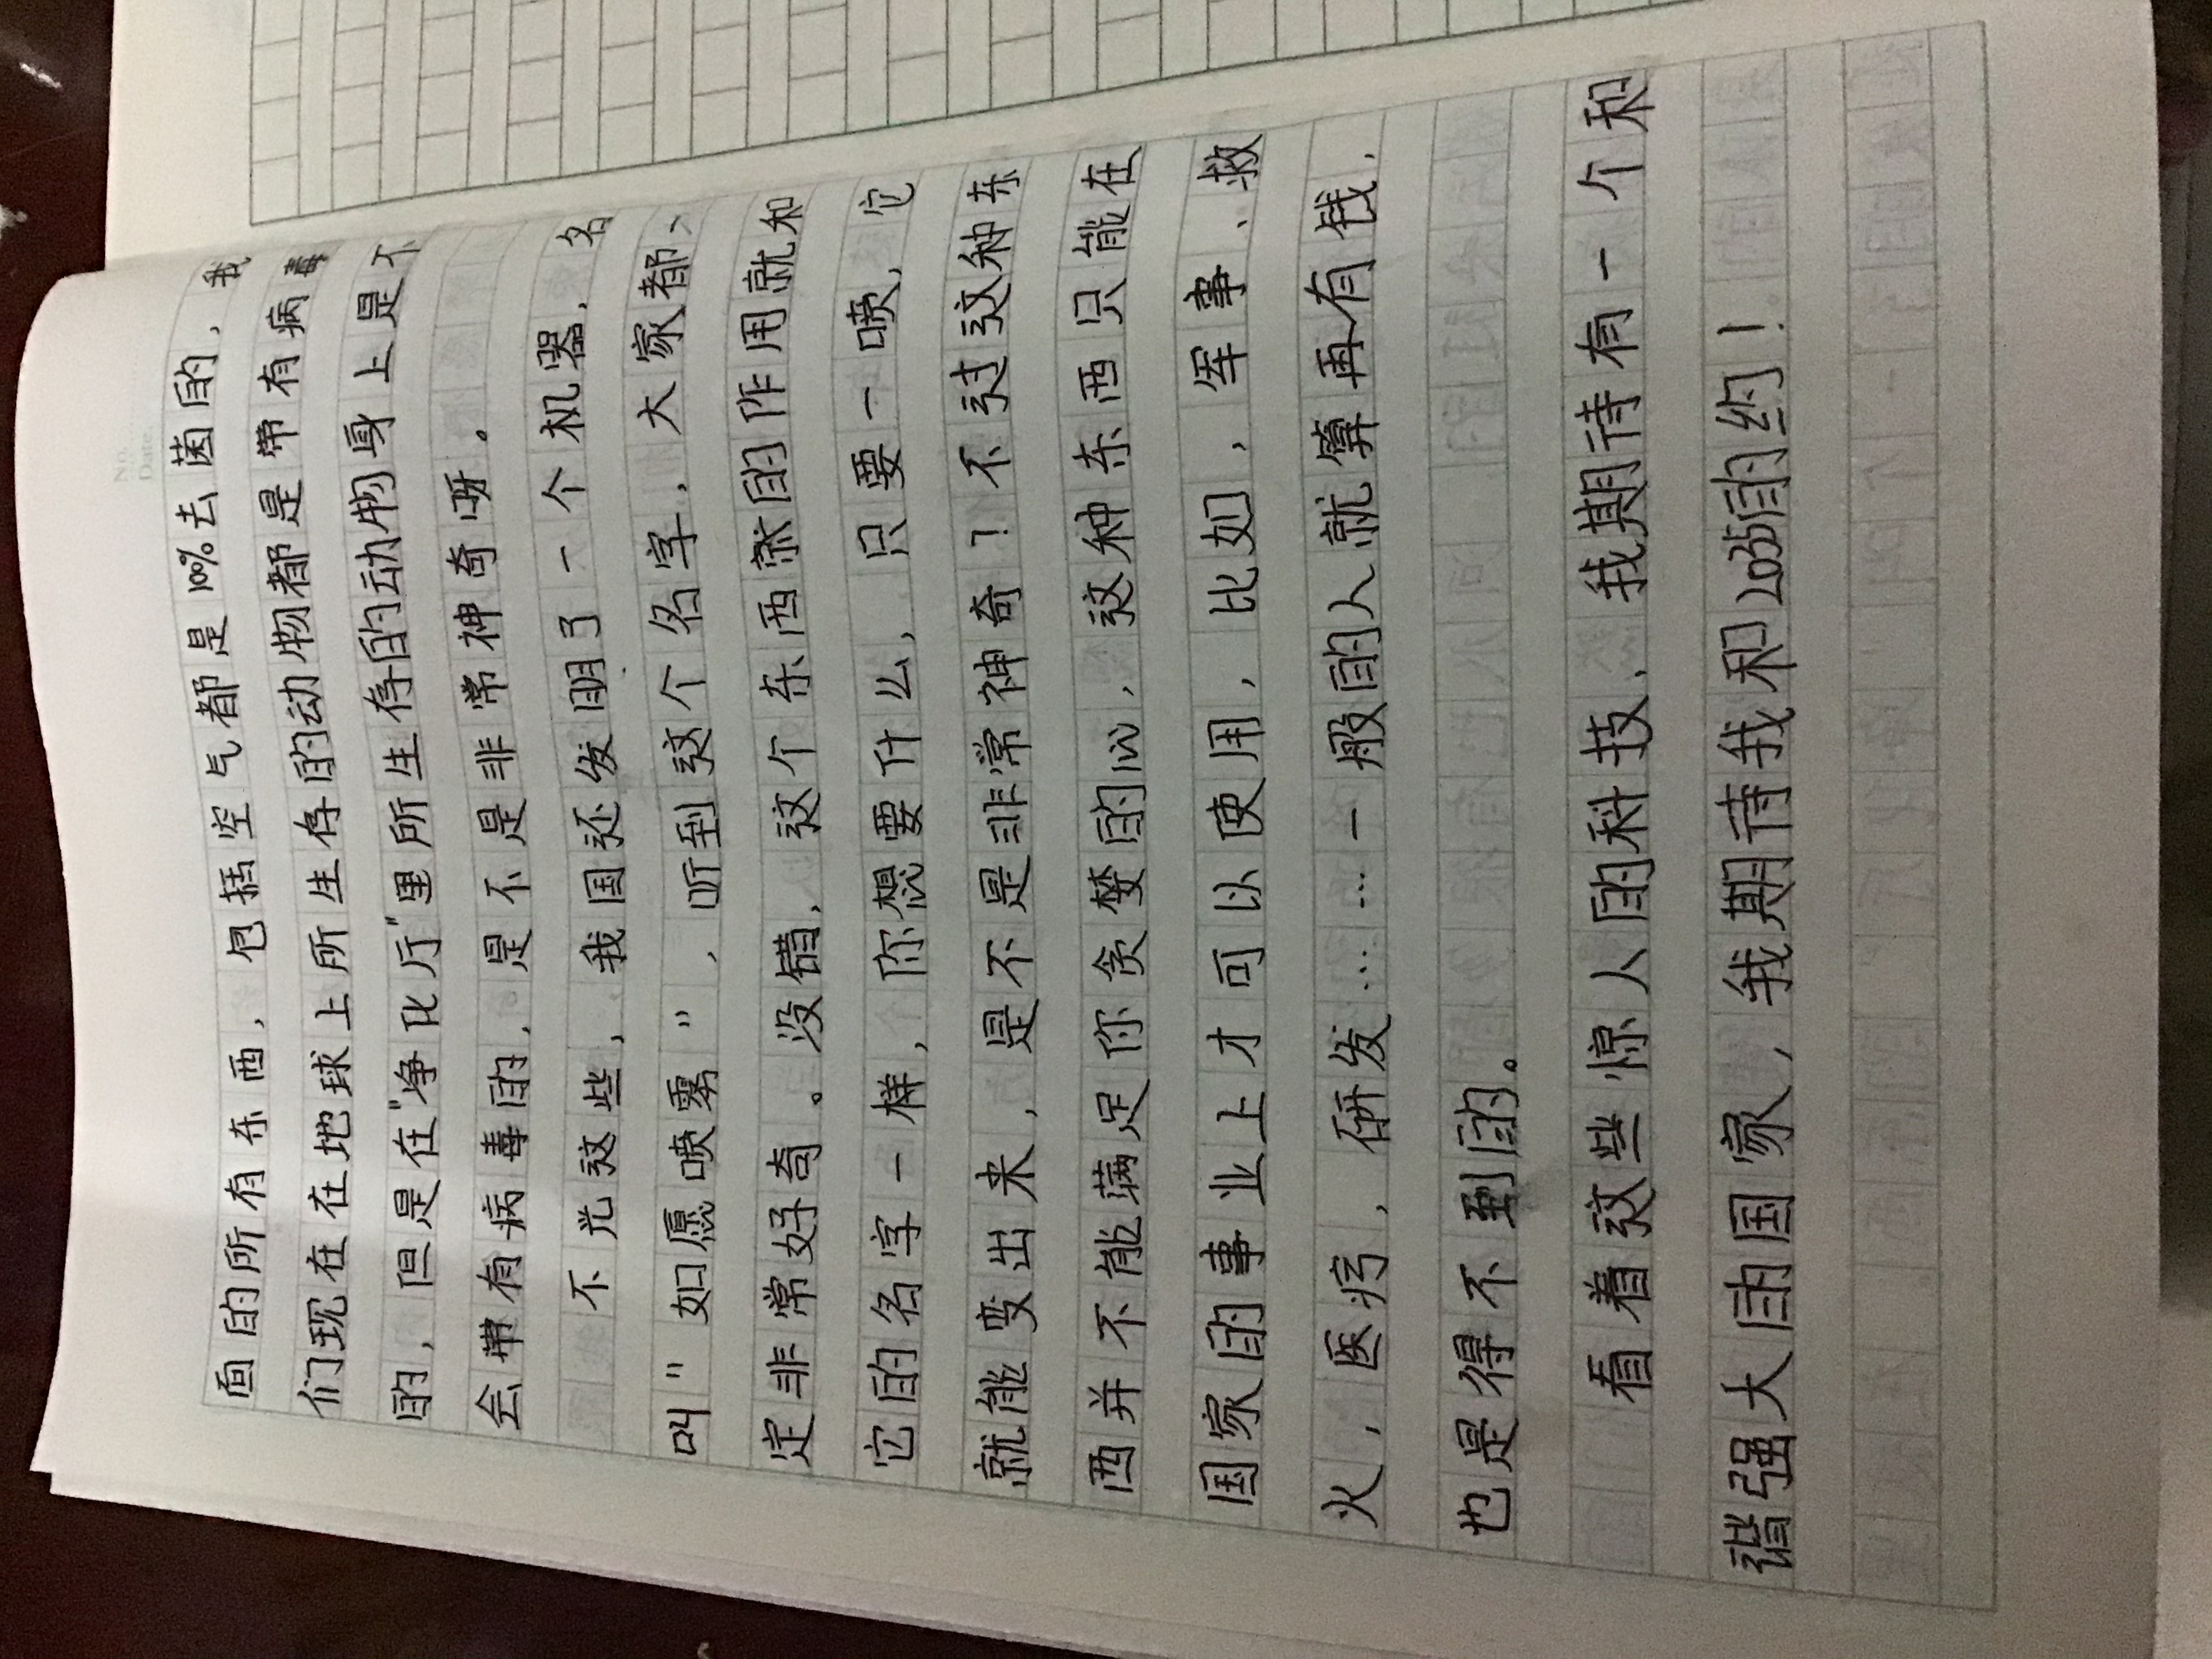 No.
Date.
面的所有东西，包括空气都是100%去菌的，我
们现在在地球上所生存的动物都是带有病毒
的，但是在"净化厅"里所生存的动物身上是不
会带有病毒的，是不是非常神奇呀。
不光这些，我国还发明了一个机器，名
叫"如愿喷雾"，听到这个名字，大家都
定非常好奇。没错，这个东西就的作用就和
它的名字一样，你想要什么，只要一喷，它
就能变出来，是不是非常神奇？不过这种东
西并不能满足你贪婪的心，这种东西只能在
国家的事业上才可以使用，比如，军事、救
火，医疗，研发……一般的人就算再有钱，
也是得不到的。
看着这些惊人的科技，我期待有一个和
谐强大的国家，我期待我和2035的约！